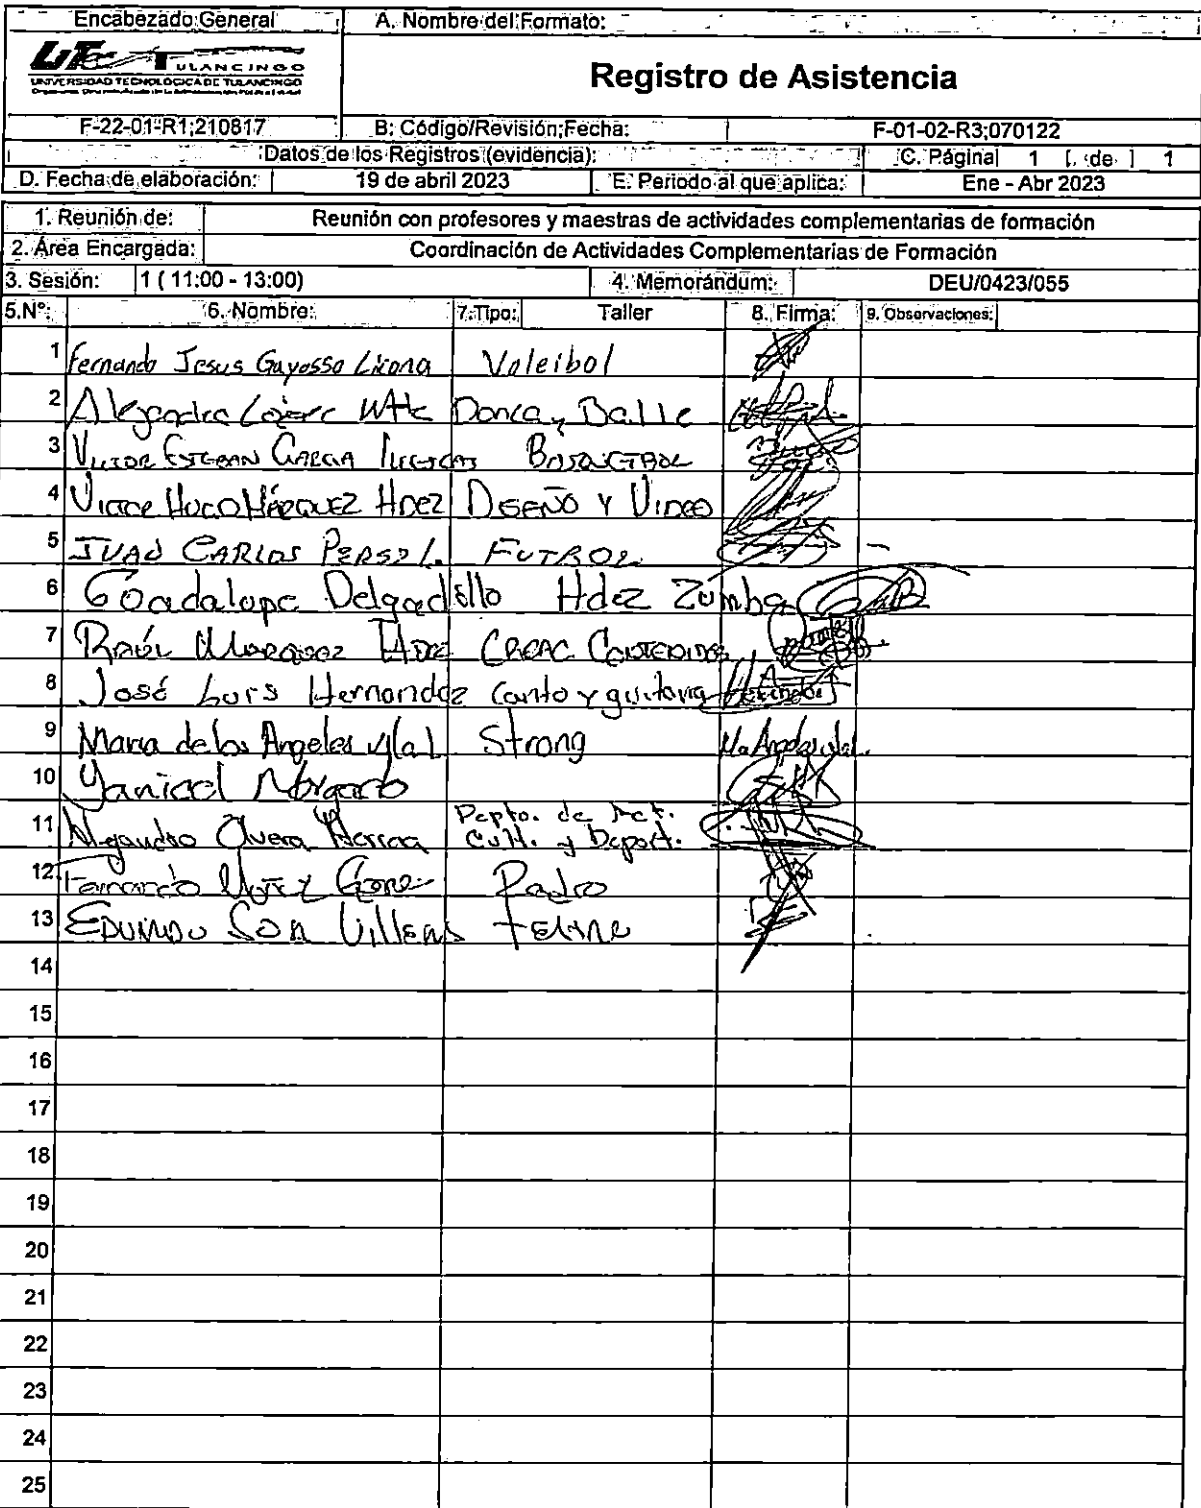 Encabezado General
A. Nombre del Formato:
TULANCINGO
UNIVERSIDAD TECNOLÓGICA DE TULANCINGO
Registro de Asistencia
F-22-01-R1;210817
B: Código/Revisión;Fecha:
F-01-02-R3;070122
Datos de los Registros (evidencia):
C. Página 1 [. de ] 1
D. Fecha de elaboración: 19 de abril 2023 E. Periodo al que aplica: Ene - Abr 2023
1. Reunión de: Reunión con profesores y maestras de actividades complementarias de formación
2. Área Encargada: Coordinación de Actividades Complementarias de Formación
3. Sesión: 1 ( 11:00 - 13:00) 4. Memorándum: DEU/0423/055
5.N°: 6. Nombre: 7.Tipo: Taller 8. Firma: 9. Observaciones:
1 Fernando Jesus Gayosso Licona Voleibol
2 Alejandra
3 VICTOR ESTEBAN GARCIA
4 VICTOR HUGO MÁRQUEZ HDEZ DISEÑO Y VIDEO
5 JUAN CARLOS PEREZ L. FUTBOL
6 Guadalupe Delgadillo Hdez Zumba
7 RAÚL MARQUEZ HDEZ CREAC. CONTENIDOS
8 José Luis Hernandez Canto y guitarra
9 Maria de los Angeles Strong
10 Morgado
11 Alejandro Olvera Depto. de Act.
Cult. y Deport.
12 Fernando
13
14
15
16
17
18
19
20
21
22
23
24
25